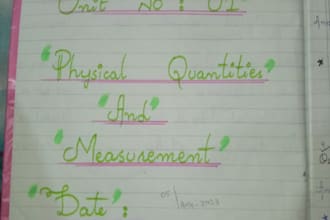 Unit No : 01
"Physical Quantities"
"And"
"Measurement"
"Date" :